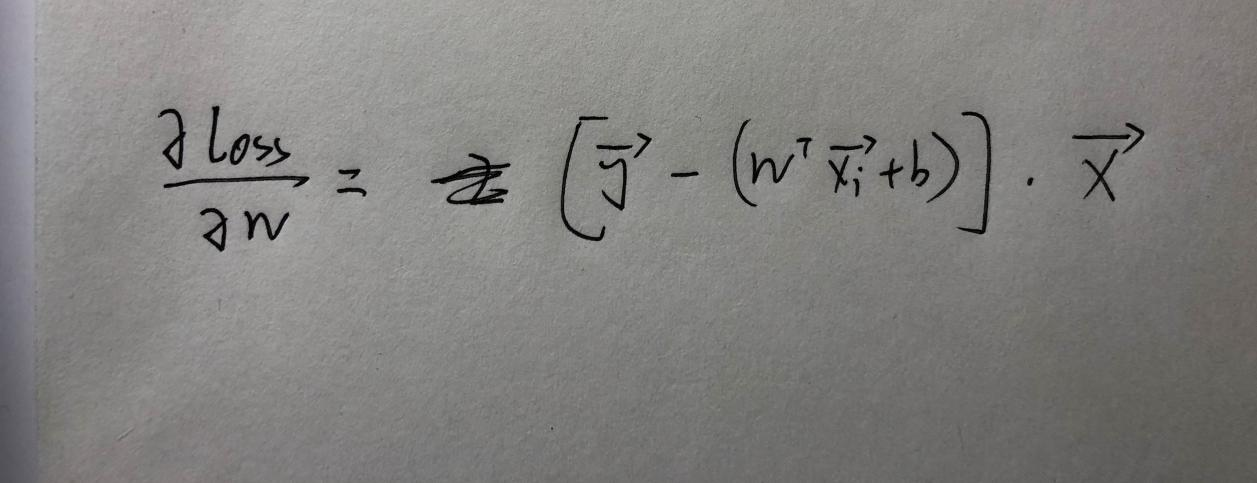 ∂Loss/∂w = [y⃗ - (wᵀ x⃗ᵢ + b)] · x⃗